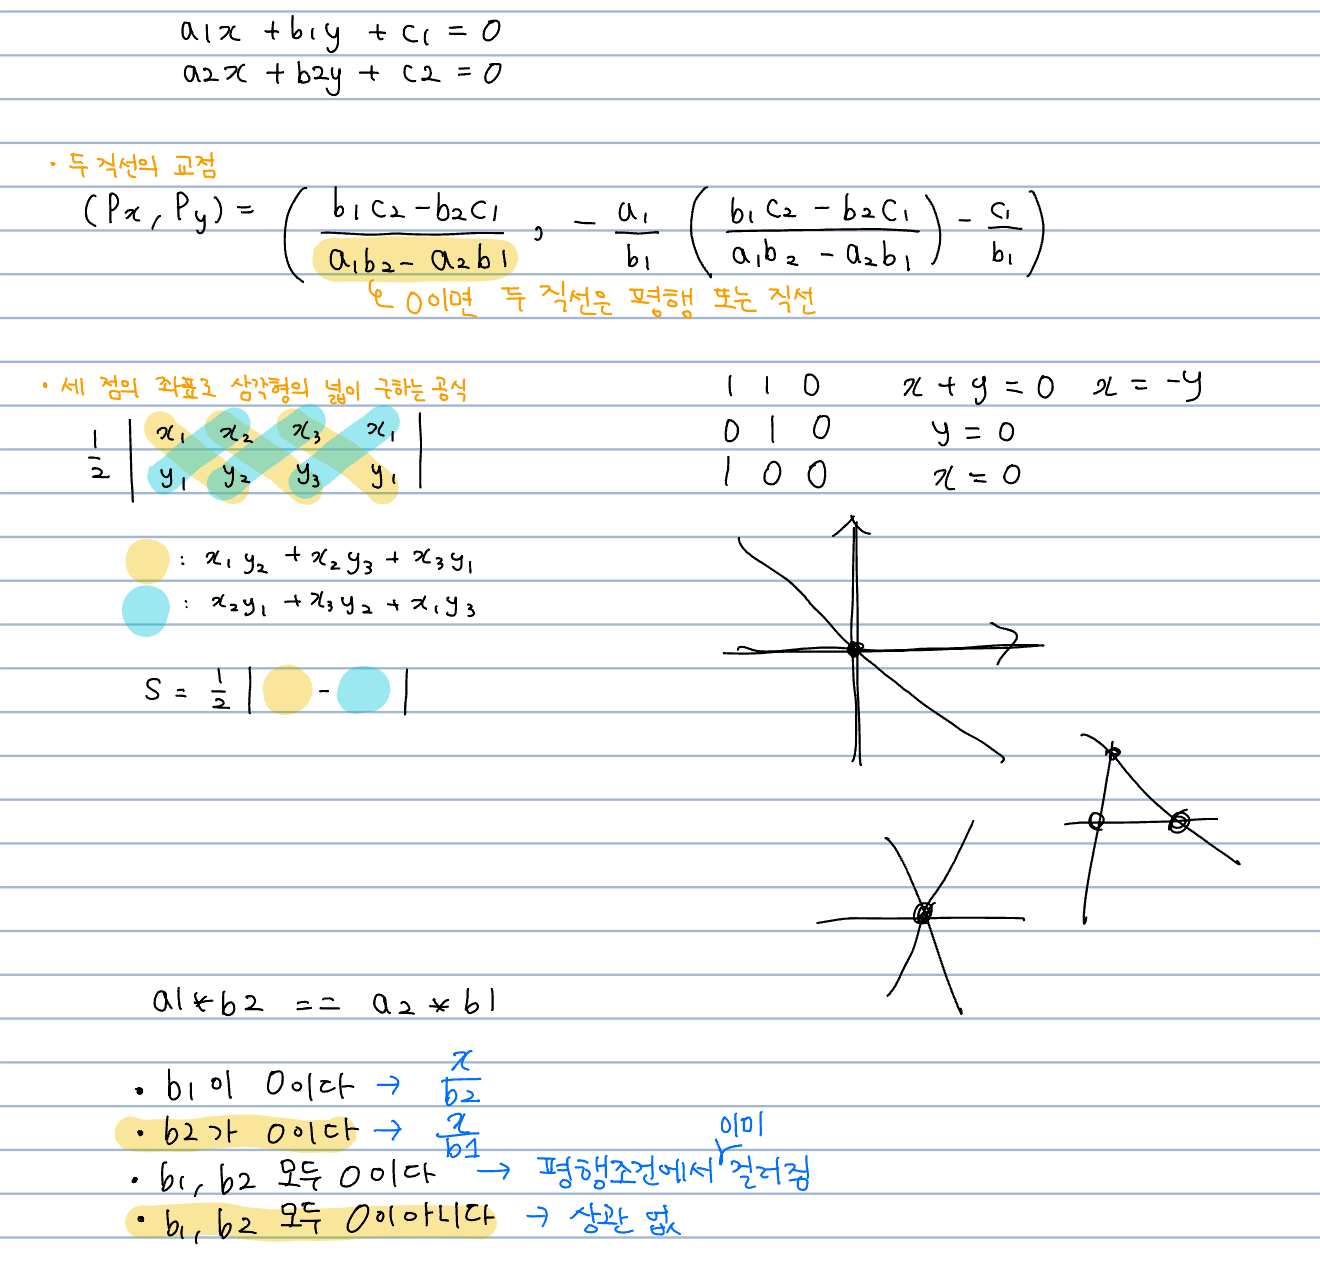 a1x + b1y + c1 = 0
a2x + b2y + c2 = 0
· 두 직선의 교점
(Px, Py) = ( (b1c2 - b2c1)/(a1b2 - a2b1), - a1/b1 ( (b1c2 - b2c1)/(a1b2 - a2b1) ) - c1/b1 )
0이면 두 직선은 평행 또는 직선
· 세 점의 좌표로 삼각형의 넓이 구하는 공식
1/2 | x1 x2 x3 x1
y1 y2 y3 y1 |
: x1y2 + x2y3 + x3y1
: x2y1 + x3y2 + x1y3
S = 1/2 | - |
1 1 0 x + y = 0 x = -y
0 1 0 y = 0
1 0 0 x = 0
a1*b2 == a2*b1
· b1이 0이다 → x/b2
· b2가 0이다 → x/b1
· b1, b2 모두 0이다 → 평행조건에서 이미 걸러짐
· b1, b2 모두 0이아니다 → 상관 없